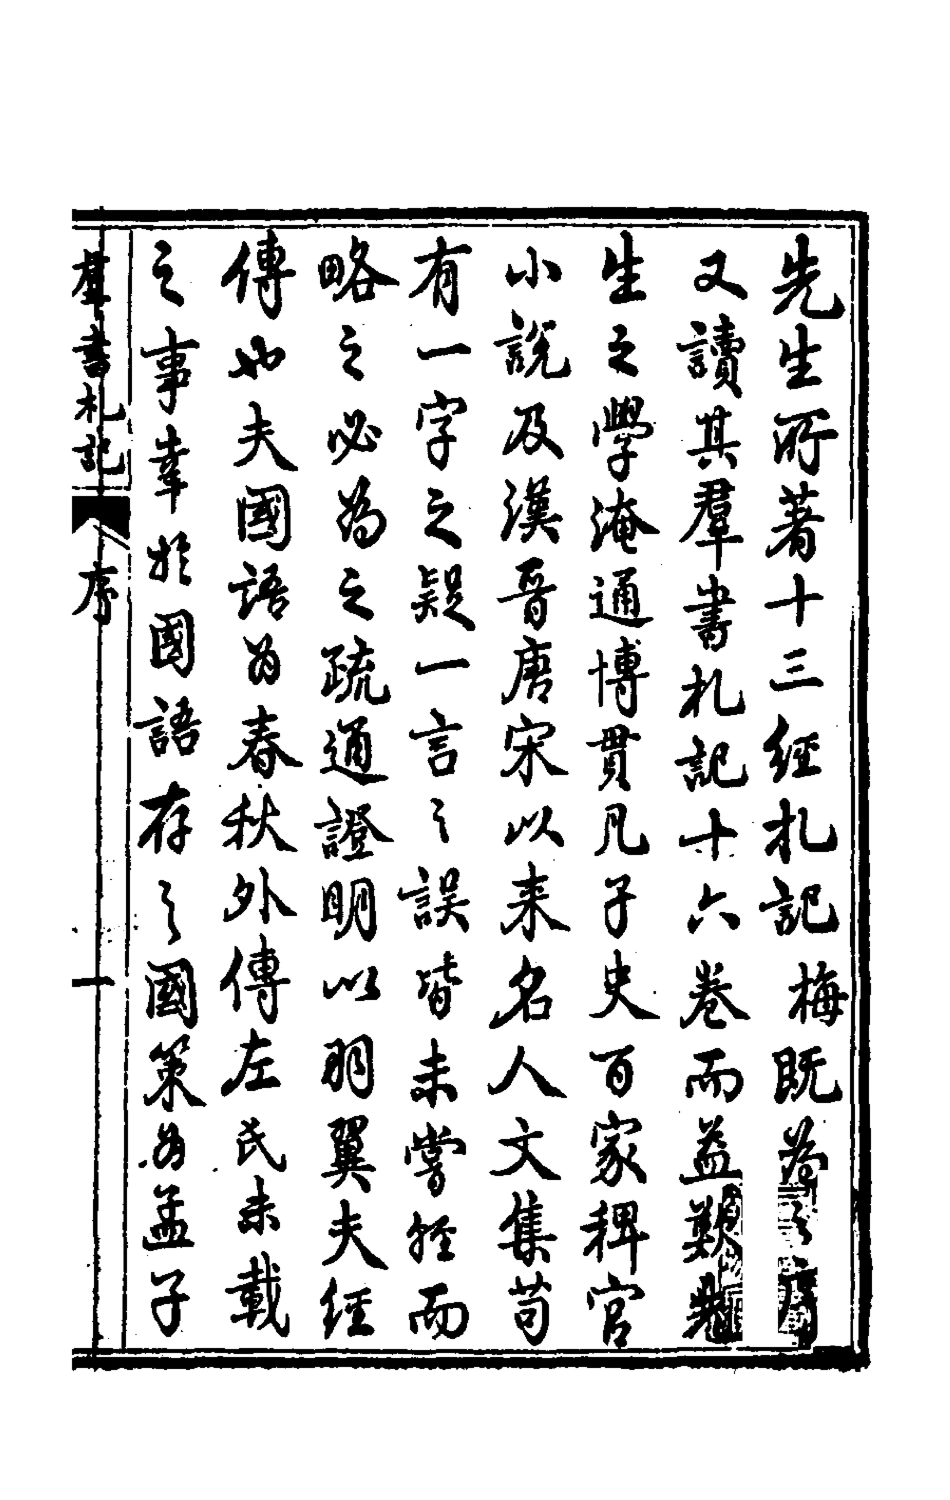 先生所著十三經札記梅既為之序
又讀其羣書札記十六卷而益歎先
生之學淹通博貫凡子史百家稗官
小說及漢晉唐宋以来名人文集苟
有一字之疑一言之誤皆未嘗輕而
略之必為之疏通證明以羽翼夫經
傳也夫國語為春秋外傳左氏未載
之事率於國語存之國策為孟子
羣書札記 序 一